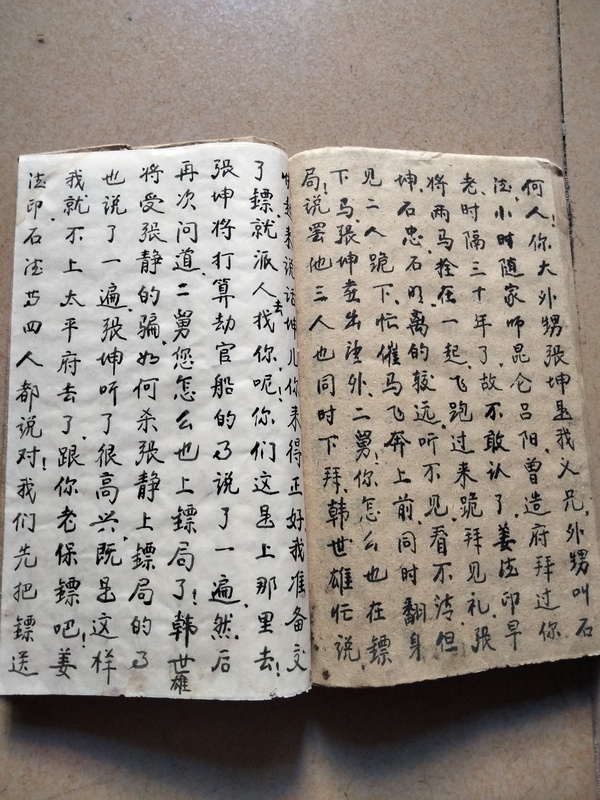 何人!你大外甥张坤是我义兄,外甥叫石
法,小时随家师昆仑吕阳,曾造府拜过你
老,时隔三十年了,故不敢认了,姜法印早
将两马拴在一起,飞跑过来跪拜见礼,张
坤石忠,石明离的较远,听不见看不清,但
见二人跪下,忙催马飞奔上前,同时翻身
下马,张坤喜出望外,二舅!你怎么也在镖
局!说罢他三人也同时下拜,韩世雄忙说,
起来说话坤儿你来得正好我准备交
了镖,就派人去找你呢!你们这是上那里去!
张坤将打算劫官船的事说了一遍,然后
再次问道,二舅您怎么也上镖局了!韩世雄
将受张静的骗,如何杀张静上镖局的事
也说了一遍,张坤听了很高兴,既是这样
我就不上太平府去了,跟你老保镖吧!姜
法印石法等四人都说对!我们先把镖送